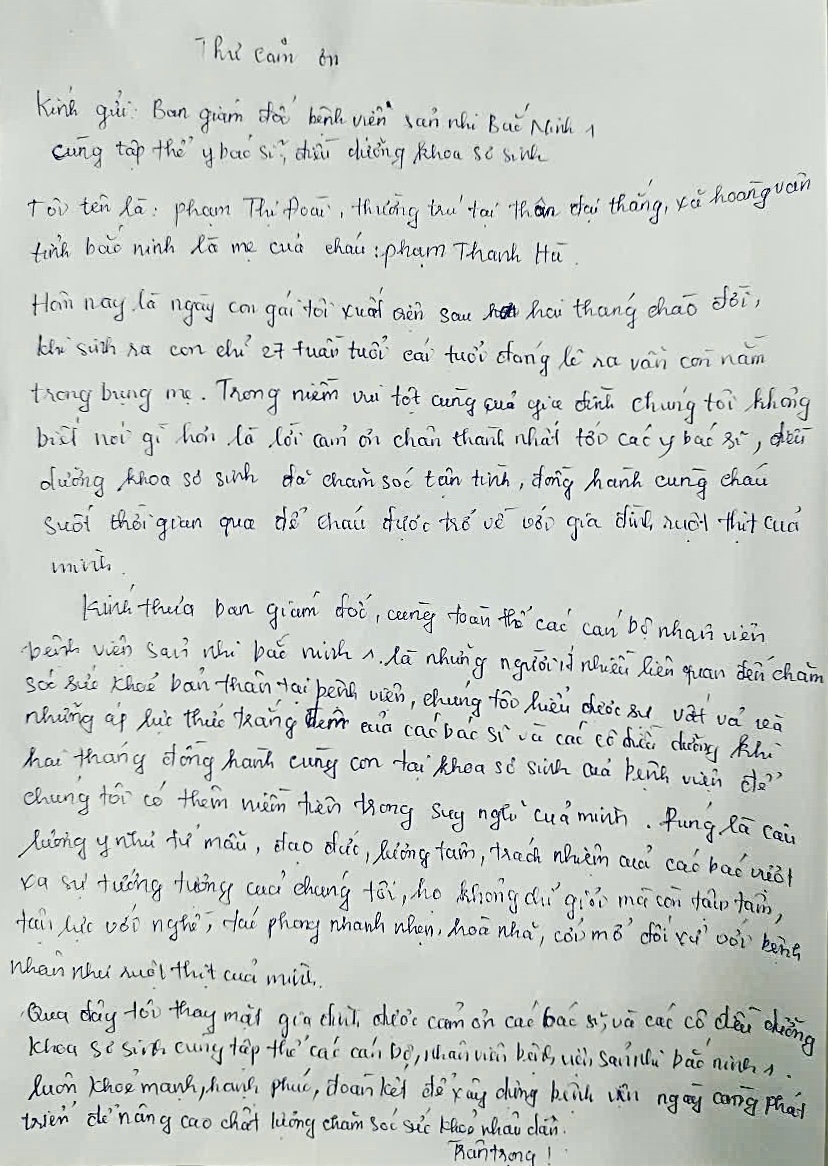 Thư cảm ơn
Kính gửi: Ban giám đốc bệnh viện sản nhi Bắc Ninh 1
cùng tập thể y bác sĩ, điều dưỡng khoa sơ sinh
Tôi tên là: phạm Thị Đoài, thường trú tại thôn đại thắng, xã hoàng vân
tỉnh bắc ninh là mẹ của cháu: phạm Thanh Hà.
Hôm nay là ngày con gái tôi xuất viện sau hai tháng chào đời,
khi sinh ra con chỉ 27 tuần tuổi cái tuổi đáng lẽ ra vẫn còn nằm
trong bụng mẹ. Trong niềm vui tột cùng của gia đình chúng tôi không
biết nói gì hơn là lời cảm ơn chân thành nhất tới các y bác sĩ, điều
dưỡng khoa sơ sinh đã chăm sóc tận tình, đồng hành cùng cháu
suốt thời gian qua để cháu được trở về với gia đình ruột thịt của
mình.
Kính thưa ban giám đốc, cùng toàn thể các cán bộ nhân viên
bệnh viện sản nhi bắc ninh 1. là những người ít nhiều liên quan đến chăm
sóc sức khoẻ bản thân tại bệnh viện, chúng tôi hiểu được sự vất vả và
những áp lực thức trắng đêm của các bác sĩ và các cô điều dưỡng khi
hai tháng đồng hành cùng con tại khoa sơ sinh của bệnh viện để
chúng tôi có thêm niềm tin trong suy nghĩ của mình. Đúng là câu
lương y như từ mẫu, đạo đức, lương tâm, trách nhiệm của các bác vượt
xa sự tưởng tượng của chúng tôi, họ không chỉ giỏi mà còn tận tâm,
tận lực với nghề, tác phong nhanh nhẹn, hoà nhã, cởi mở đối xử với bệnh
nhân như ruột thịt của mình.
Qua đây tôi thay mặt gia đình được cảm ơn các bác sĩ, và các cô điều dưỡng
khoa sơ sinh cùng tập thể các cán bộ, nhân viên bệnh viện sản nhi bắc ninh 1.
luôn khoẻ mạnh, hạnh phúc, đoàn kết để xây dựng bệnh viện ngày càng phát
triển để nâng cao chất lượng chăm sóc sức khoẻ nhân dân.
Trân trọng!